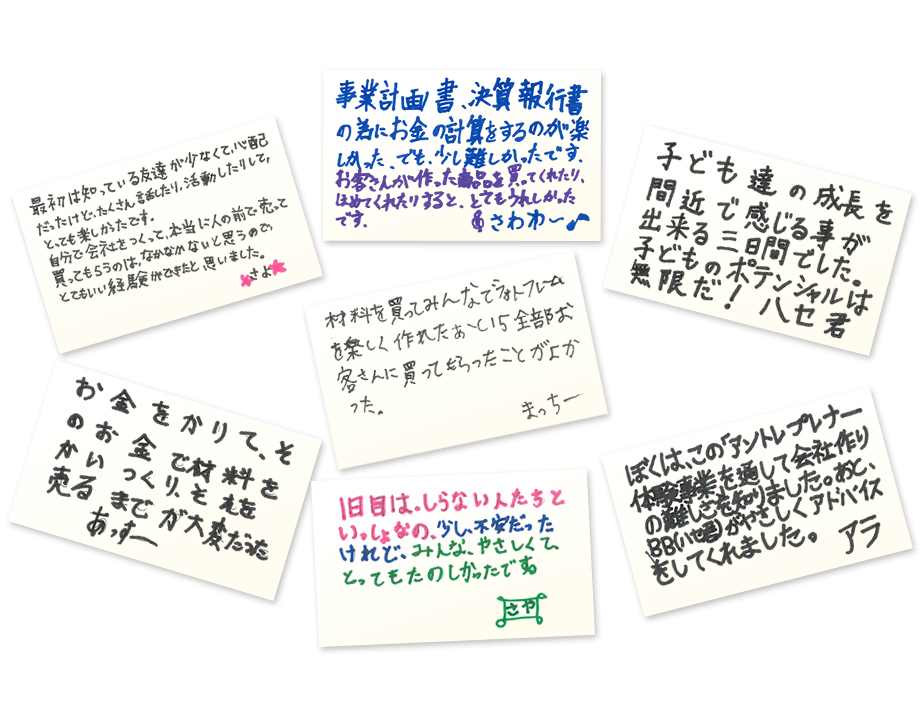 最初は知っている友達が少なくて、心配
だったけど、たくさん話したり、活動したりして、
とっても楽しかったです。
自分で会社をつくって、本当に人の前で売って
買ってもらうのは、なかなかないと思うので、
とてもいい経験ができたと、思いました。
さよ
事業計画書、決算報行書
の為にお金の計算をするのが楽
しかった、でも、少し難しかったです。
お客さんが作った商品を買ってくれたり、
ほめてくれたりすると、とてもうれしかった
です。
さわわ〜♪
子ども達の成長を
間近で感じる事が
出来る三日間でした。
子どものポテンシャルは
無限だ! ハセ君
材料を買ってみんなでフォトフレーム
を楽しく作れたぁ〜と15全部お
客さんに買ってもらったことがよか
った。
まっちー
お金をかりて、そ
のお金で材料を
かいつくり、もえを
売るまでが大変だった
あっすー
1日目は、しらない人たちと
いっしょなの、少し、不安だった
けれど、みんな、やさしくて、
とってもたのしかったですね
さや
ぼくは、この「アントレプレナー
体験事業を通して会社作り
の難しさを知りました。あと、
BB(ハセ君)がやさしくアドバイス
をしてくれました。 アラ